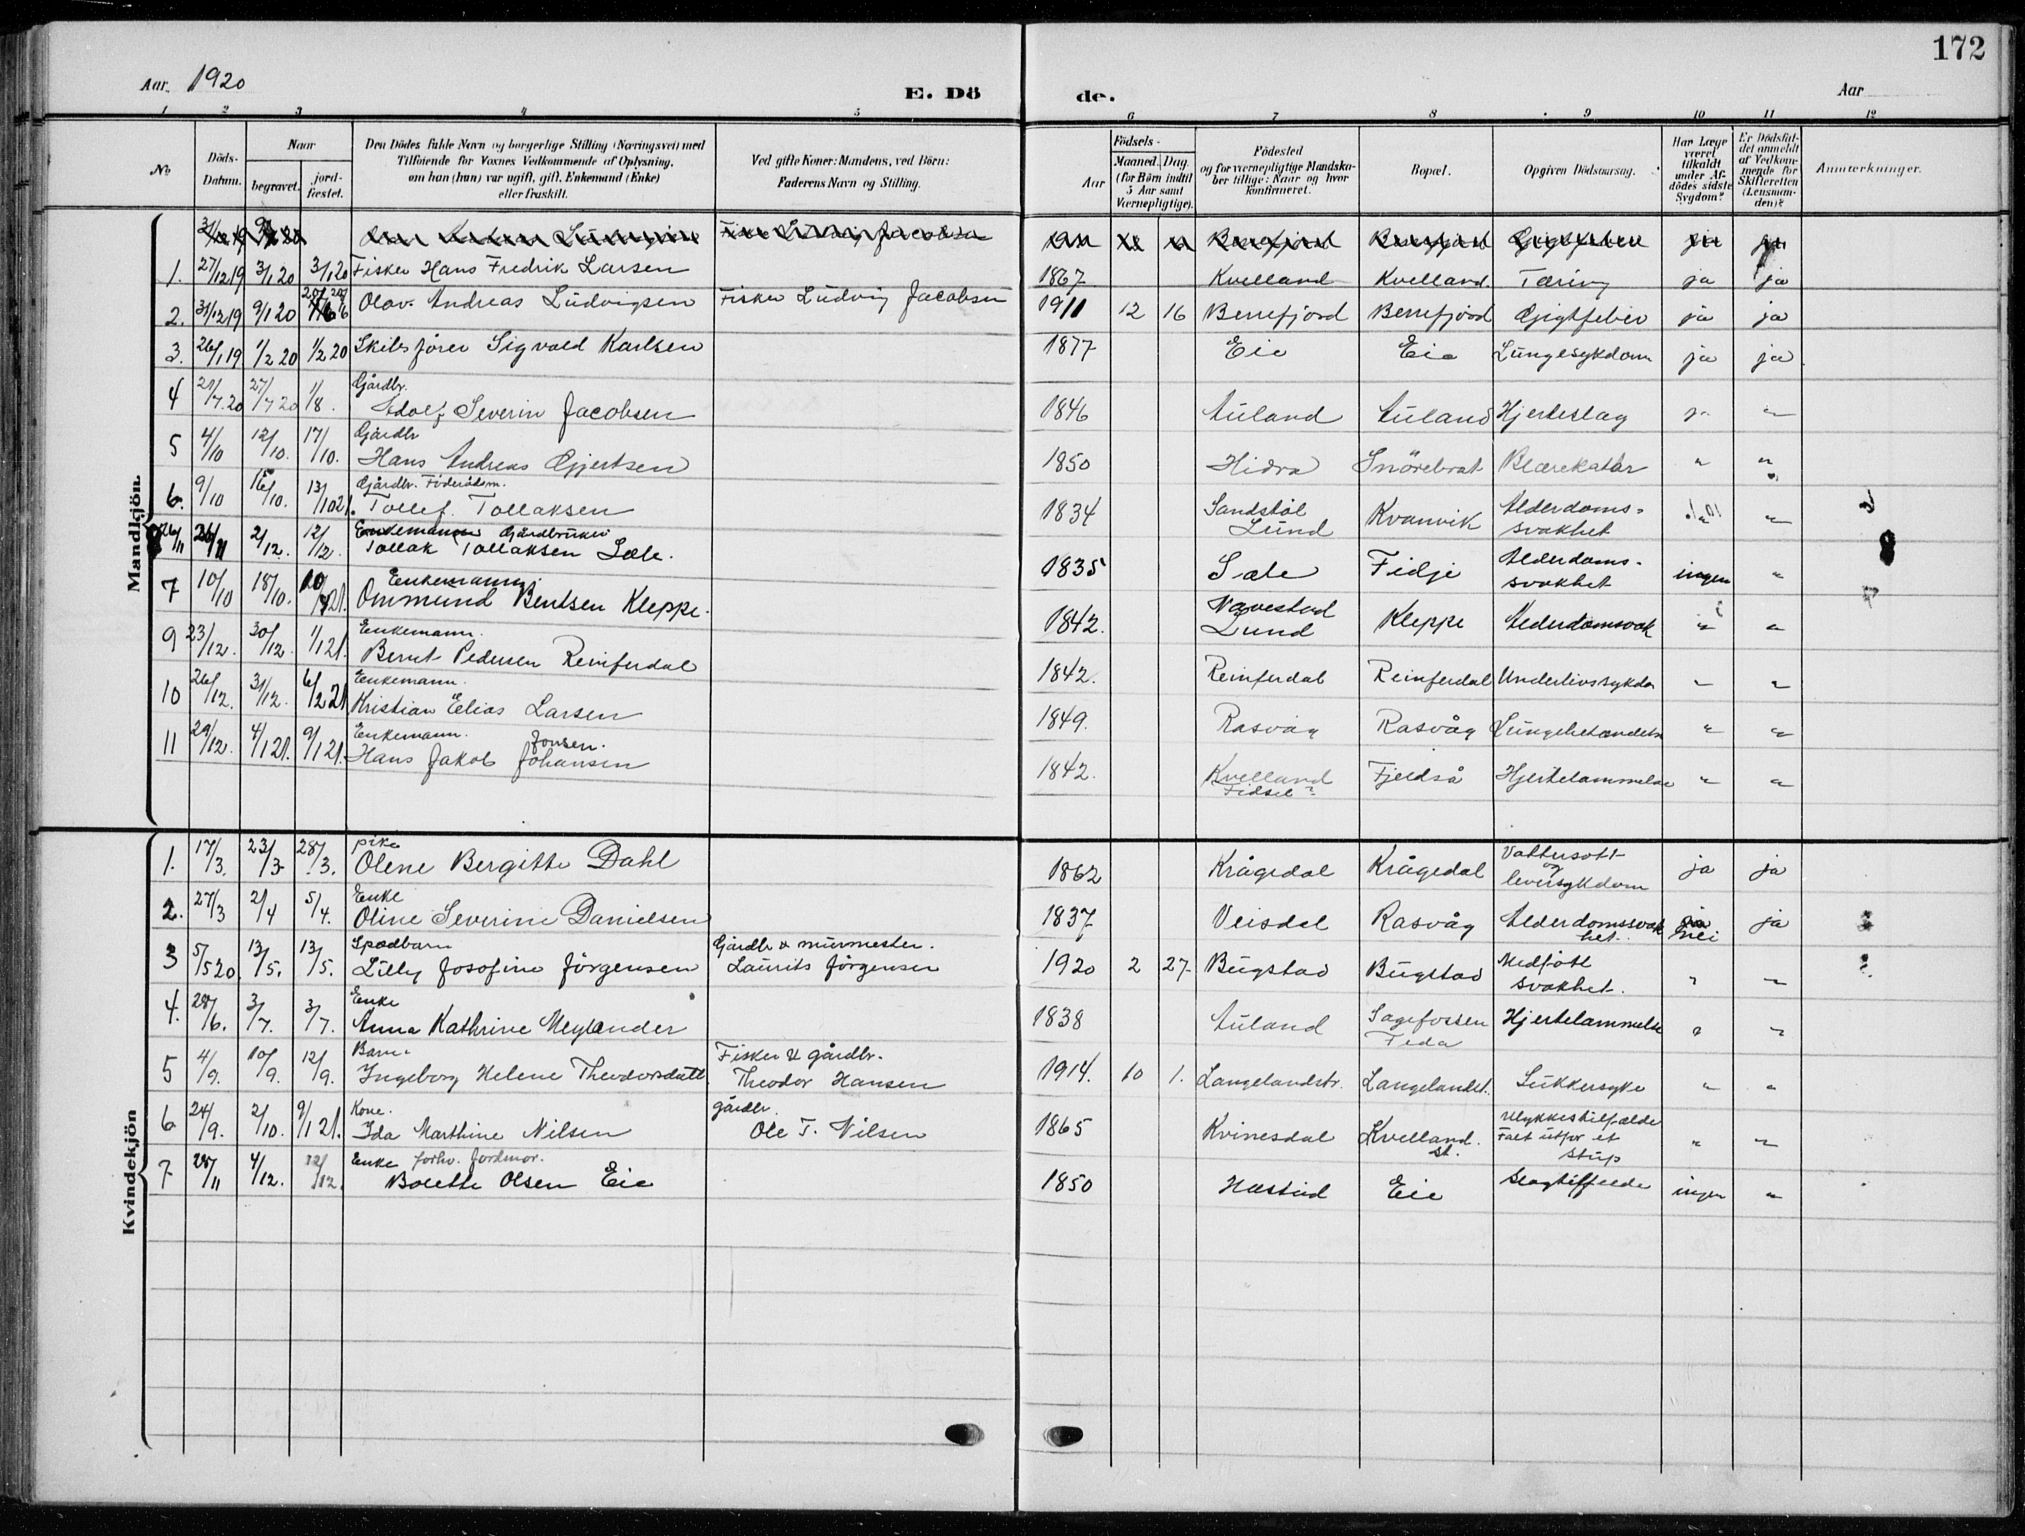 172
Aar. 1920
E. Dö
de.
Aar
1 2 3 4 5 6 7 8 9 10 11 12
No
Döds-Datum.
Naar
begravet.
jord-fæstet.
Den Dödes fulde Navn og borgerlige Stilling (Næringsvei) med
Tilföiende for Voxnes Vedkommende af Oplysning,
om han (hun) var ugift, gift, Enkemand (Enke)
eller fraskilt.
Ved gifte Koner: Mandens, ved Börn:
Faderens Navn og Stilling.
Födsels-
Aar
Maaned. Dag.
(for Börn indtil
5 Aar samt
Værnepligtige).
Födested
og for vernepligtige Mandska-
ber tillige: Naar og hvor
konfirmeret.
Bopæl.
Opgiven Dödsaarsag.
Har Læge
været
tilkaldt
under Af-
dödes sidste
Sygdom?
Er Dödsfal-
det anmeldt
af Vedkom-
mende for
Skifteretten
(Lensman-
den)?
Anmærkninger.
Mandkjön.
1. 27/12 19 3/1 20 3/1 20 Fisker Hans Fredrik Larsen 1867 Kvelland Kvelland Tæring ja ja
2. 31/12 19 9/1 20 Olav Andreas Ludvigsen Fisker Ludvig Jacobsen 1911 12 16 Berrefjord Berrefjord Gigtfeber ja ja
3. 26/1 19 1/2 20 1/2 20 Skibsförer Sigvald Karlsen 1877 Eie Eie Lungesykdom ja ja
4 21/7 20 27/7 20 1/8. Gårdbr.
Adolf Severin Jacobsen 1846 Auland Auland Hjerteslag "
5 4/10 12/10. 17/10. Gårdbr
Hans Andreas Gjertsen 1850 Hidra Snörebrat Blærekatar " "
6. 9/10 16/10. 13/10 21. Gårdbr. Föderådsm.
Tollef Tollaksen 1834 Sandstöl
Lund Kvanvik Alderdoms-
svakhet "
8 26/11 2/12. 12/12. Enkemann Gårdbruker
Tollak Tollaksen Sæle. 1835 Sæle Fidje Alderdoms-
svakhet ingen "
7 10/10 18/10. Enkemann.
Ommund Bentsen Kleppe. 1842. Navestad
Lund Kleppe Alderdomsvak " "
9 23/12. 30/12. 1/1 21. Enkemann.
Bernt Pedersen Reinferdal 1842. Reinferdal Reinferdal Underlivssykdo " "
10 26/12. 31/12. 6/2 21 Enkemann.
Kristian Elias Larsen 1849. Rasvåg Rasvåg Lungebetændels " "
11 29/12. 4/1 21. 9/1 21. Enkemann. Jonsen.
Hans Jakob Johansen 1842. Kvelland
Fidsel? Fjeldså Hjertelammelse " "
Kvindekjön
1. 17/3. 23/3 28/3. pike
Olene Bergitte Dahl 1862 Krågedal Krågedal Vattersott
og
leversykdom ja ja
2. 27/3 2/4 5/4. Enke
Oline Severine Danielsen 1837 Veisdal Rasvåg Alderdomssvak
het. nei ja
3 5/5 20. 13/5. 13/5. Spædbarn Gårdbr & murmester.
Lilly Josofine Jörgensen Laurits Jörgensen 1920 2 27. Bugstad Bugstad Medfött
svakhet. " "
4. 28/6. 3/7. 3/7. Enke
Anna Kathrine Meylander 1838 Auland Sagefossen
Feda Hjertelammelse " "
5 4/9. 10/9. 12/9. Barn. Fisker & gårdbr.
Ingeborg Helene Theodorsdatt. Theodor Hansen 1914. 10 1. Langelandstr. Langelandst. Sukkersyke " "
6 24/9. 2/10. 9/1 21. Kone. gårdbr.
Ida Marthine Nilsen Ole T. Nilsen 1865 Kvinesdal Kvelland.
st. Ulykkestilfælde
Falt utfor et
stup " "
7 28/11 4/12. 12/12. Enke forhv. Jordmor.
Bolette Olsen Eie 1850 Hæstad Eie Slagtilfelde ingen "